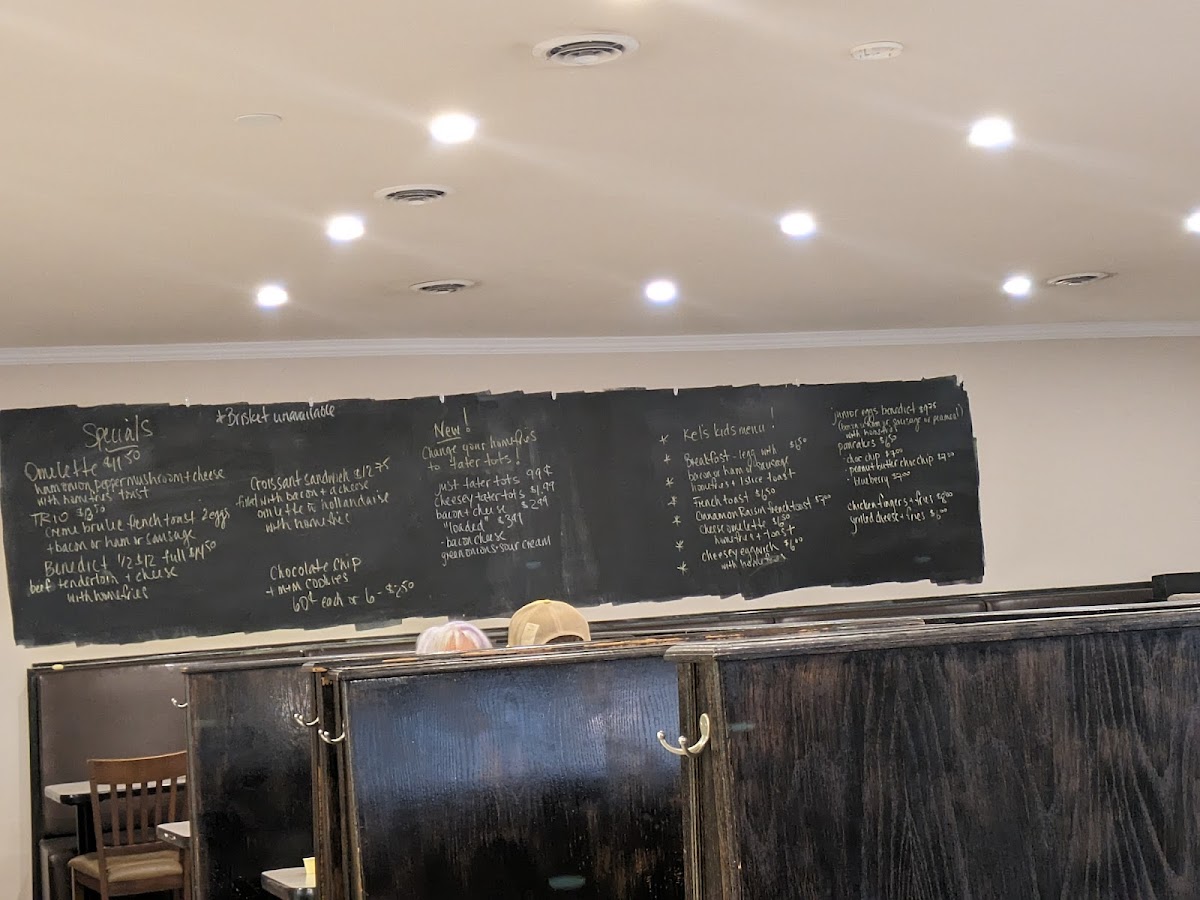 Specials
Omelette $11.50
ham onion pepper mushroom + cheese
with homefries toast
TRIO
creme brulee french toast 2 eggs
+ bacon or ham or sausage
Benedict 1/2 $12 full $14.50
beef tenderloin + cheese
with homefries
*Brisket unavailable
Croissant sandwich $12.75
filled with bacon + a cheese
omlette + hollandaise
with homefries
Chocolate Chip
+ m+m cookies
60¢ each or 6 - $2.50
New!
Change your homefries
to tater tots!
just tater tots 99¢
cheesey tater tots $1.99
bacon + cheese $2.99
"loaded" $3.99
- bacon cheese
green onions + sour cream
* Kel's kids menu!
* Breakfast - 1 egg with $6.50
bacon or ham or sausage
homefries + 1 slice toast
* French toast $6.50
* Cinnamon Raisin french toast $7.00
* Cheese omelette $6.50
homefries + toast
* cheesey eggwich $6.00
with homefries
junior eggs benedict $9.75
(bacon or ham or sausage or peameal)
with homefries
pancakes $6.50
- choc chip $7.00
- peanut butter choc chip $7.00
- blueberry $7.00
chicken fingers + fries $8.00
grilled cheese + fries $6.00